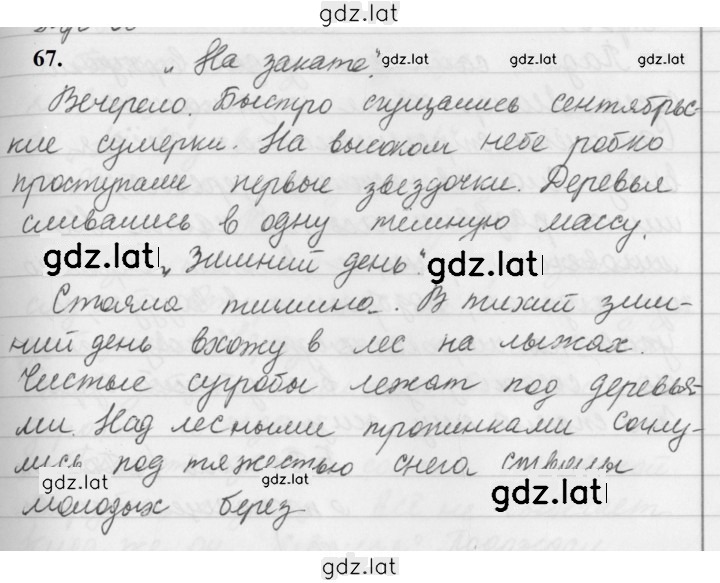 gdz.lat
67. „На закате." gdz.lat gdz.lat gdz.lat
Вечерело. Быстро сгущались сентябрьс-
кие сумерки. На высоком небе робко
проступали первые звездочки. Деревья
сливались в одну темную массу.
gdz.lat „Зимний день". gdz.lat
Стояла тишина. В тихий зим-
ний день вхожу в лес на лыжах.
Чистые сугробы лежат под деревья-
ми. Над лесными тропинками согну-
лись под тяжестью снега стволы
gdz.lat gdz.lat gdz.lat
молодых берез
gdz.lat